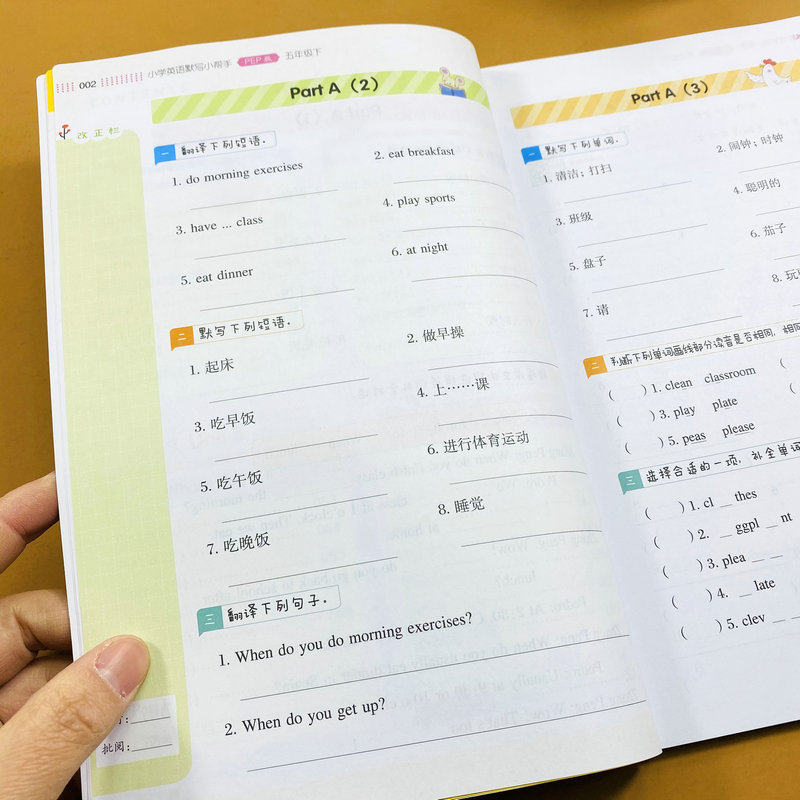 002
小学英语默写小帮手 PEP版 五年级下
改正栏
Part A (2)
一 翻译下列短语.
1. do morning exercises
2. eat breakfast
3. have ... class
4. play sports
5. eat dinner
6. at night
二 默写下列短语.
1. 起床
2. 做早操
3. 吃早饭
4. 上……课
5. 吃午饭
6. 进行体育运动
7. 吃晚饭
8. 睡觉
三 翻译下列句子.
1. When do you do morning exercises?
2. When do you get up?
批阅:
Part A (3)
一 默写下列单词.
1. 清洁; 打扫
2. 闹钟; 时钟
3. 班级
4. 聪明的
5. 盘子
6. 茄子
7. 请
8. 玩
二 判断下列单词画线部分读音是否相同, 相同
( ) 1. clean classroom
( ) 3. play plate
( ) 5. peas please
三 选择合适的一项, 补全单词
( ) 1. cl _ thes
( ) 2. _ ggpl _ nt
( ) 3. plea _ _
( ) 4. _ late
( ) 5. clev _ _